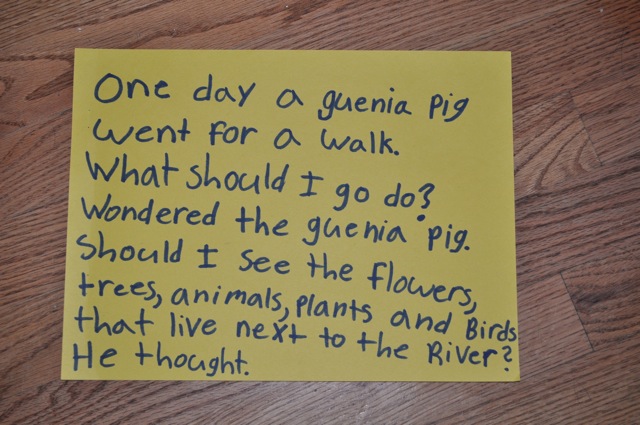 One day a guenia pig
went for a walk.
What should I go do?
Wondered the guenia pig.
Should I see the flowers,
trees, animals, plants and Birds
that live next to the River?
He thought.